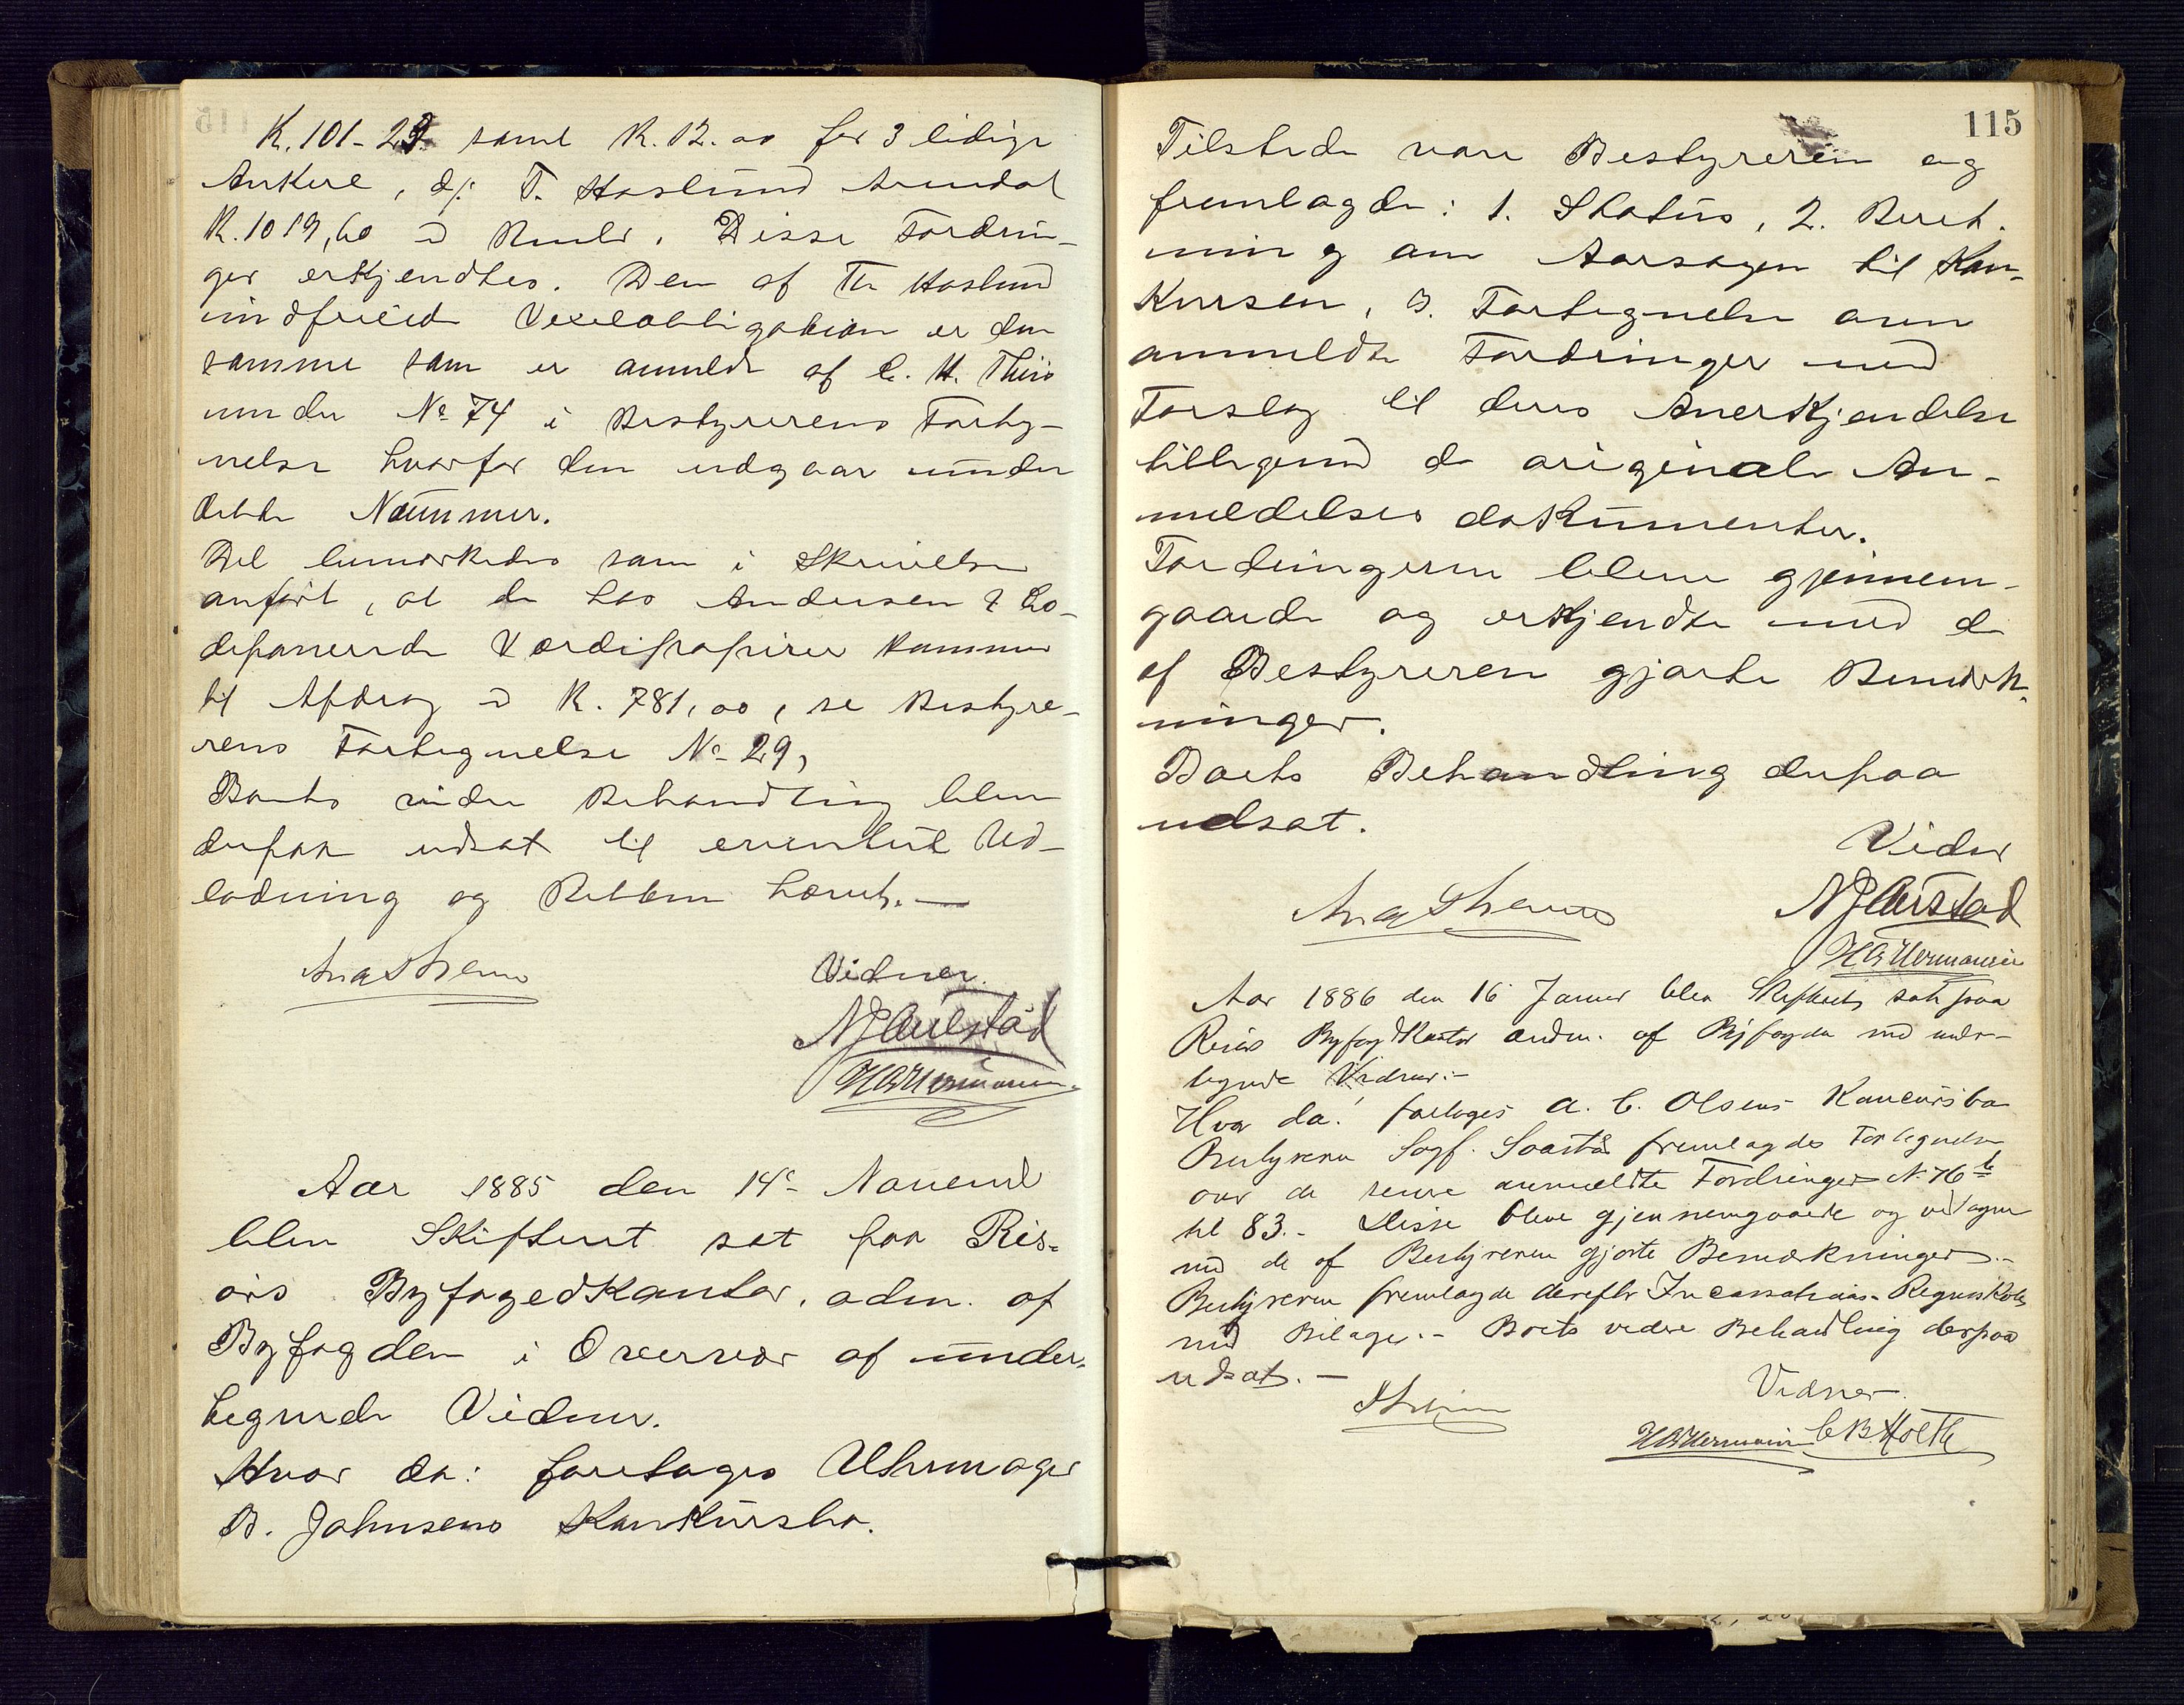 K. 101-29 samt K. 12.00 for 3 ledige
Ankere, d/: T. Haslund Arendal
K. 1019,60 Renter. Disse Fordrin-
ger erkjendtes. Den af Th Haslund
indfriede Vexelobligation er den
samme som er anmeldt af C. H. Thiis
under No 74 i Bestyrerens Forteg-
nelse hvorfor den udgaar under
dette Nummer.
Det bemærkedes som i Skrivelsen
anført, at de hos Andersen & Co
deponerede Værdipapirer kommer
til Afdrag K. 781,00, se Bestyre-
rens Fortegnelse No 29,
Boets videre Behandling blev
derpaa udsat til eventuel Ud-
lodning og Retten hævet. —
Aug Thranes
Vidner.
N J Aulstad
H B Hermansen
Aar 1885 den 14de Novembr
blev Skifteret sat paa Ris-
ørs Byfogedkontor, adm. af
Byfogden i Overvær af under-
tegnede Vidner.
Hvor da: foretoges Uhrmager
B. Johnsens Konkursbo.
115
Tilstede vare Bestyreren og
fremlagde: 1. Status, 2. Beret-
ning om Aarsagen til Kon-
kursen, 3. Fortegnelse over
anmeldte Fordringer med
Forslag til deres Anerkjendelse
tilligemed de originale An-
meldelses dokumenter.
Fordringerne bleve gjennem-
gaaede og erkjendte med de
af Bestyreren gjorte Bemærk-
ninger.
Boets Behandling derpaa
udsat.
Vidner
N J Aulstad
H B Hermansen
Aar 1886 den 16 Januar blev Skifteret sat paa
Risørs Byfogdkontor adm. af Byfogden med under-
tegnede Vidner.-
Hvor da! foretoges A. C. Olsens Koncursbo
Bestyreren Sagf. Soastad fremlagdes Fortegnelse
over de senere anmeldte Fordringer No 76de
til 83.- Disse bleve gjennemgaaede og vedtagne
med de af Bestyreren gjorte Bemærkninger.-
Bestyreren fremlagde derefter Incassations-Regnskab
med Bilage.- Boets videre Behandling derpaa
udsat.-
Vidner
H B Hermansen C B Holth